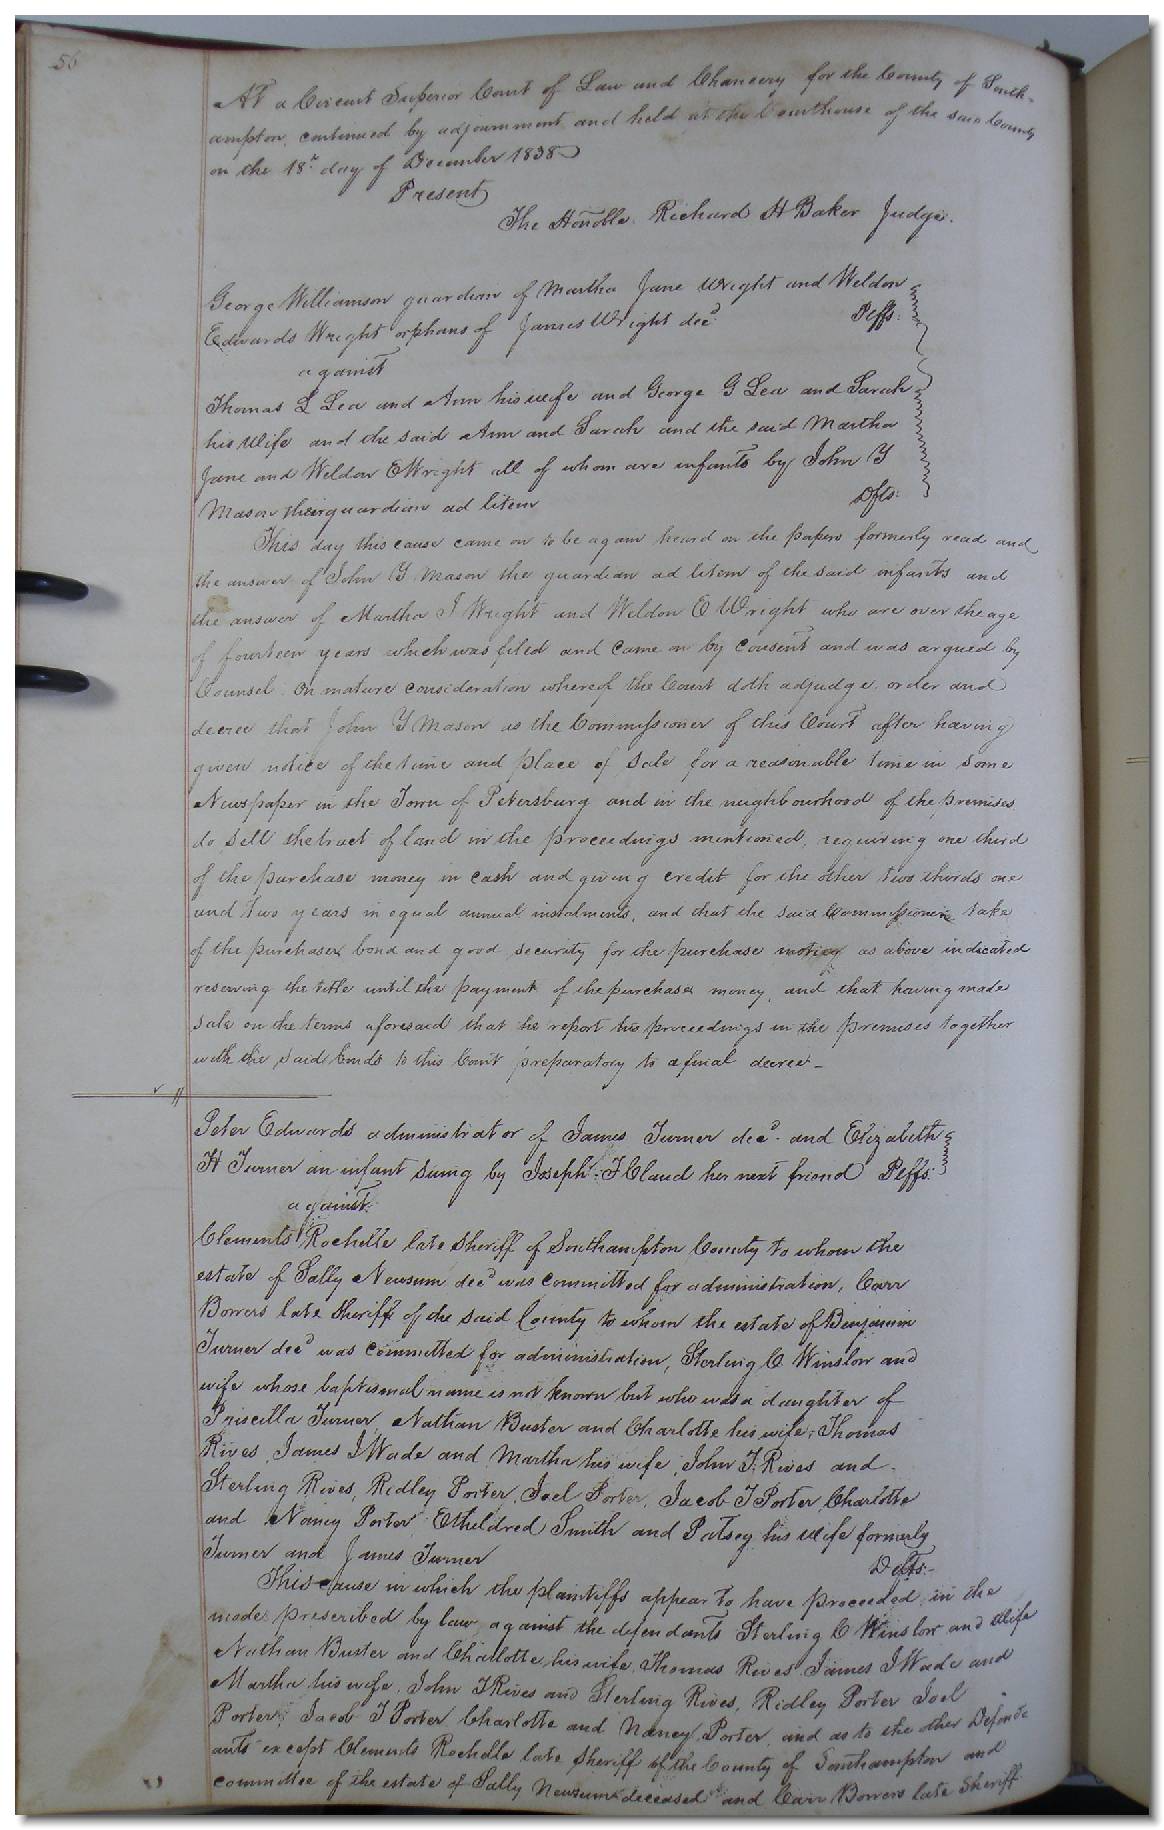 56
At a Circuit Superior Court of Law and Chancery for the County of South-
ampton, continued by adjournment and held at the Courthouse of the said County
on the 18th day of December 1838
Present
The Honoble. Richard H Baker Judge.
George Williamson guardian of Martha Jane Wright and Weldon
Edwards Wright orphans of James Wright decd. Plffs.
against
Thomas L Lea and Ann his wife and George G Lea and Sarah
his Wife and the said Ann and Sarah and the said Martha
Jane and Weldon E Wright all of whom are infants by John Y
Mason their guardian ad litem Dfts.
This day this cause came on to be again heard on the papers formerly read and
the answer of John Y Mason the guardian ad litem of the said infants and
the answer of Martha J Wright and Weldon E Wright who are over the age
of fourteen years which was filed and came on by consent and was argued by
Counsel. On mature consideration whereof the Court doth adjudge order and
decree that John Y Mason as the Commissioner of this Court after having
given notice of the time and place of sale for a reasonable time in some
Newspaper in the Town of Petersburg and in the neighbourhood of the premises
do sell the tract of land in the proceedings mentioned, requiring one third
of the purchase money in cash and giving credit for the other two thirds one
and two years in equal annual instalments, and that the said Commissioner take
of the purchaser bond and good security for the purchase money as above indicated
reserving the title until the payment of the purchase money, and that having made
sale on the terms aforesaid that he report his proceedings in the premises together
with the said bonds to this Court preparatory to a final decree -
Peter Edwards administrator of James Turner decd. and Elizabeth
H Turner an infant suing by Joseph T Claud her next friend Plffs.
against
Clements Rochelle late Sheriff of Southampton County to whom the
estate of Sally Newsum decd was committed for administration, Carr
Bowers late Sheriff of the said County to whom the estate of Benjamin
Turner decd was committed for administration, Sterling C Winslow and
wife whose baptismal name is not known but who was a daughter of
Priscilla Turner, Nathan Buster and Charlotte his wife, Thomas
Rives, James J Wade and Martha his wife, John T Rives and
Sterling Rives, Ridley Porter, Joel Porter, Jacob T Porter, Charlotte
and Nancy Porter Etheldred Smith and Patsey his Wife formerly
Turner and James Turner Defts.-
This cause in which the plaintiffs appear to have proceeded in the
mode prescribed by law, against the defendants Sterling C Winslow and Wife
Nathan Buster and Charlotte his wife, Thomas Rives, James J Wade and
Martha his wife, John T Rives and Sterling Rives, Ridley Porter Joel
Porter, Jacob T Porter Charlotte and Nancy Porter, and as to the other Defend-
ants except Clements Rochelle late Sheriff of the County of Southampton and
committee of the estate of Sally Newsum deceased and Carr Bowers late Sheriff